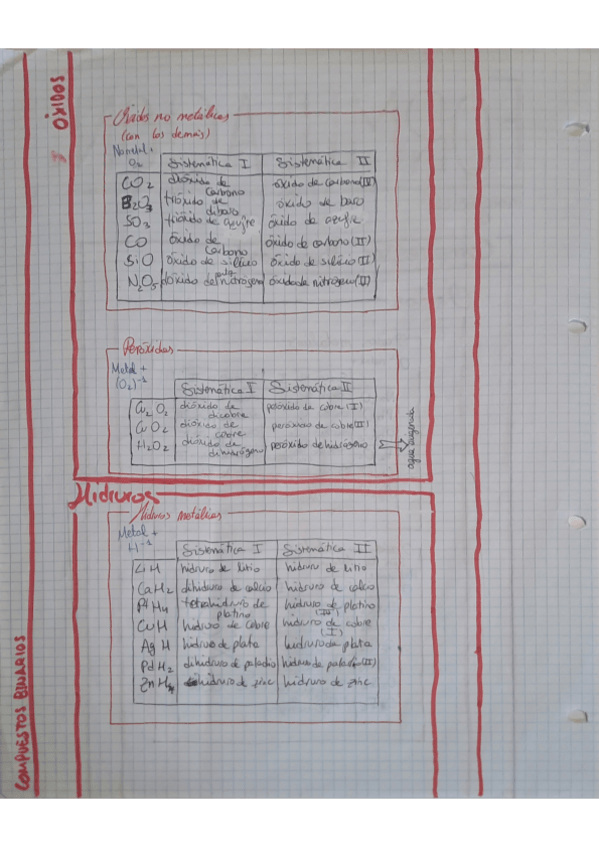 COMPUESTOS BINARIOS
ÓXIDOS
Óxidos no metálicos
(con los demás)
No metal +
O₂
Sistemática I Sistemática II
CO₂ dióxido de carbono óxido de carbono (IV)
B₂O₃ trióxido de dibono óxido de boro
SO₃ trióxido de azufre óxido de azufre
CO óxido de carbono óxido de carbono (II)
SiO óxido de silicio óxido de silicio (II)
N₂O₅ óxido de nitrógeno
Peróxidos
Metal +
(O₂)⁻¹
Sistemática I Sistemática II
Cu₂O₂ dióxido de dicobre peróxido de cobre (I)
CuO₂ dióxido de cobre peróxido de cobre (II)
H₂O₂ dióxido de dihidrógeno peróxido de hidrógeno
agua oxigenada
Hidruros
Hidruros metálicos
Metal +
H⁻¹
Sistemática I Sistemática II
LiH hidruro de litio hidruro de litio
CaH₂ dihidruro de calcio hidruro de calcio
PtH₄ tetrahidruro de platino hidruro de platino (IV)
CuH hidruro de cobre hidruro de cobre (I)
AgH hidruro de plata hidruro de plata
PdH₂ dihidruro de paladio hidruro de paladio (II)
ZnH₂ dihidruro de zinc hidruro de zinc